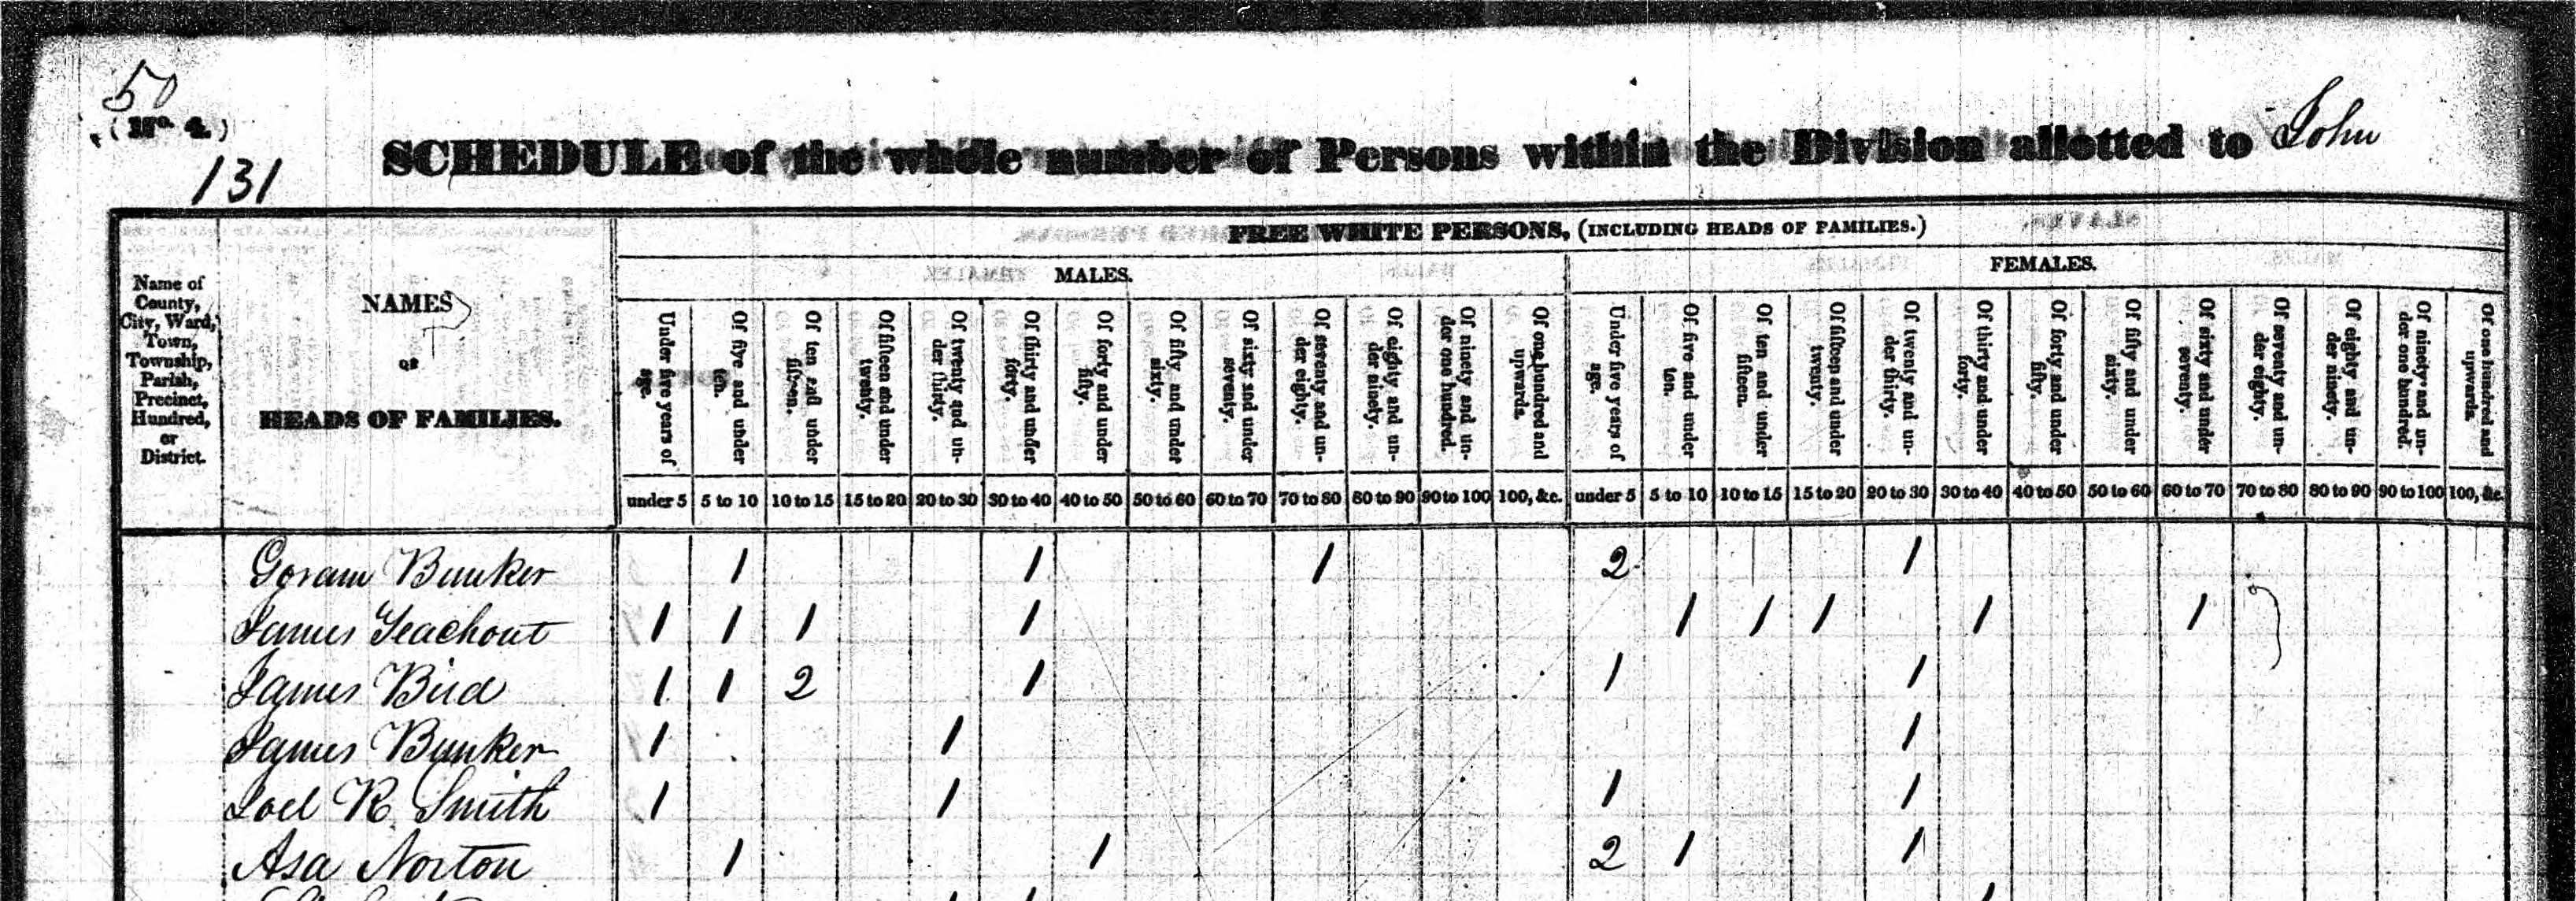 50
(No. 4.)
131
SCHEDULE of the whole number of Persons within the Division allotted to John
FREE WHITE PERSONS, (INCLUDING HEADS OF FAMILIES.)
MALES.
FEMALES.
Name of County, City, Ward, Town, Township, Parish, Precinct, Hundred, or District.
NAMES
OF
HEADS OF FAMILIES.
Under five years of age.
Of five and under ten.
Of ten and under fifteen.
Of fifteen and under twenty.
Of twenty and under thirty.
Of thirty and under forty.
Of forty and under fifty.
Of fifty and under sixty.
Of sixty and under seventy.
Of seventy and under eighty.
Of eighty and under ninety.
Of ninety and under one hundred.
Of one hundred and upwards.
Under five years of age.
Of five and under ten.
Of ten and under fifteen.
Of fifteen and under twenty.
Of twenty and under thirty.
Of thirty and under forty.
Of forty and under fifty.
Of fifty and under sixty.
Of sixty and under seventy.
Of seventy and under eighty.
Of eighty and under ninety.
Of ninety and under one hundred.
Of one hundred and upwards.
under 5 5 to 10 10 to 15 15 to 20 20 to 30 30 to 40 40 to 50 50 to 60 60 to 70 70 to 80 80 to 90 90 to 100 100, &c. under 5 5 to 10 10 to 15 15 to 20 20 to 30 30 to 40 40 to 50 50 to 60 60 to 70 70 to 80 80 to 90 90 to 100 100, &c.
Goram Bunker 1 1 1 2 1
James Teachout 1 1 1 1 1 1 1 1 1
James Bird 1 1 2 1 1 1
James Bunker 1 1 1
Joel R. Smith 1 1 1 1
Asa Norton 1 1 2 1 1